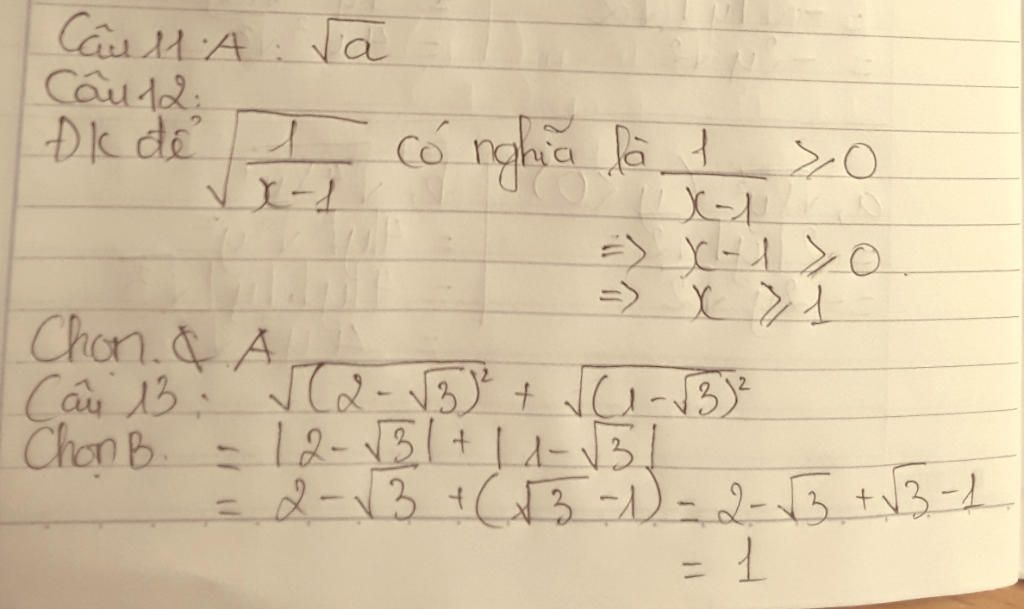 Câu 11: A: √a
Câu 12:
ĐK để √(1/(x-1)) có nghĩa là 1/(x-1) ⩾ 0
=> x-1 ⩾ 0.
=> x ⩾ 1
Chọn. A
Câu 13: √(2-√3)² + √(1-√3)²
Chọn B. = |2-√3| + |1-√3|
= 2-√3 + (√3-1) = 2-√3 + √3-1
= 1